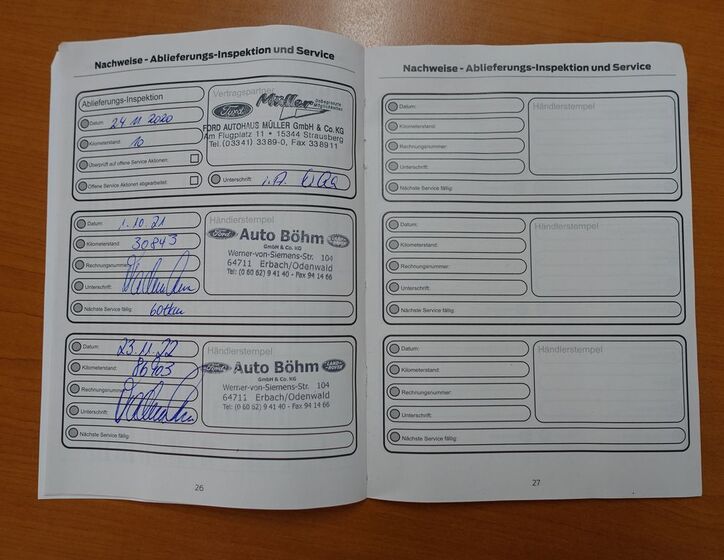 Nachweise - Ablieferungs-Inspektion und Service
Ablieferungs-Inspektion
Datum: 24 11 2020
Kilometerstand: 10
Überprüft auf offene Service Aktionen.
Offene Service Aktionen abgearbeitet.
Vertragspartner
Ford Müller
FORD AUTOHAUS MÜLLER GmbH & Co.KG
Am Flugplatz 11 • 15344 Strausberg
Tel.(03341) 3389-0, Fax 338911
Unterschrift: i.A.
Datum: 1.10.21
Kilometerstand: 30843
Rechnungsnummer:
Unterschrift:
Nächste Service fällig: 60tkm
Händlerstempel
Ford Auto Böhm
GmbH & Co. KG
Werner-von-Siemens-Str. 104
64711 Erbach/Odenwald
Tel: (0 60 62) 9 41 40 - Fax 94 14 66
Datum: 23.11.22
Kilometerstand:
Rechnungsnummer:
Unterschrift:
Nächste Service fällig:
Händlerstempel
Ford Auto Böhm LAND ROVER
GmbH & Co. KG
Werner-von-Siemens-Str. 104
64711 Erbach/Odenwald
Tel: (0 60 62) 9 41 40 - Fax 94 14 66
26
Nachweise - Ablieferungs-Inspektion und Service
Datum:
Kilometerstand:
Rechnungsnummer:
Unterschrift:
Nächste Service fällig:
Händlerstempel
Datum:
Kilometerstand:
Rechnungsnummer:
Unterschrift:
Nächste Service fällig:
Händlerstempel
Datum:
Kilometerstand:
Rechnungsnummer:
Unterschrift:
Nächste Service fällig:
Händlerstempel
27